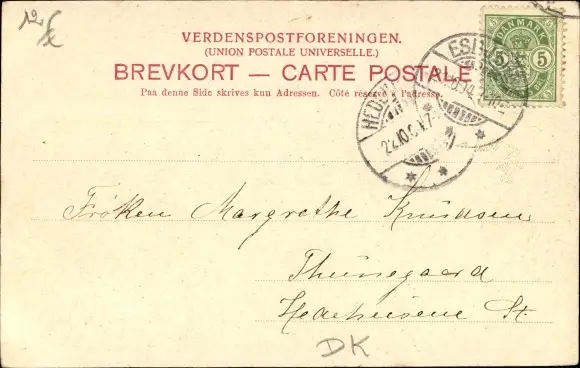 12,-
VERDENSPOSTFORENINGEN.
(UNION POSTALE UNIVERSELLE.)
BREVKORT — CARTE POSTALE
Paa denne Side skrives kun Adressen. Côté réservé à l'adresse.
DANMARK
5 5
22.10.0
Frøken Margrethe Knudsen
Thunegaard
Hedehusene St.
DK